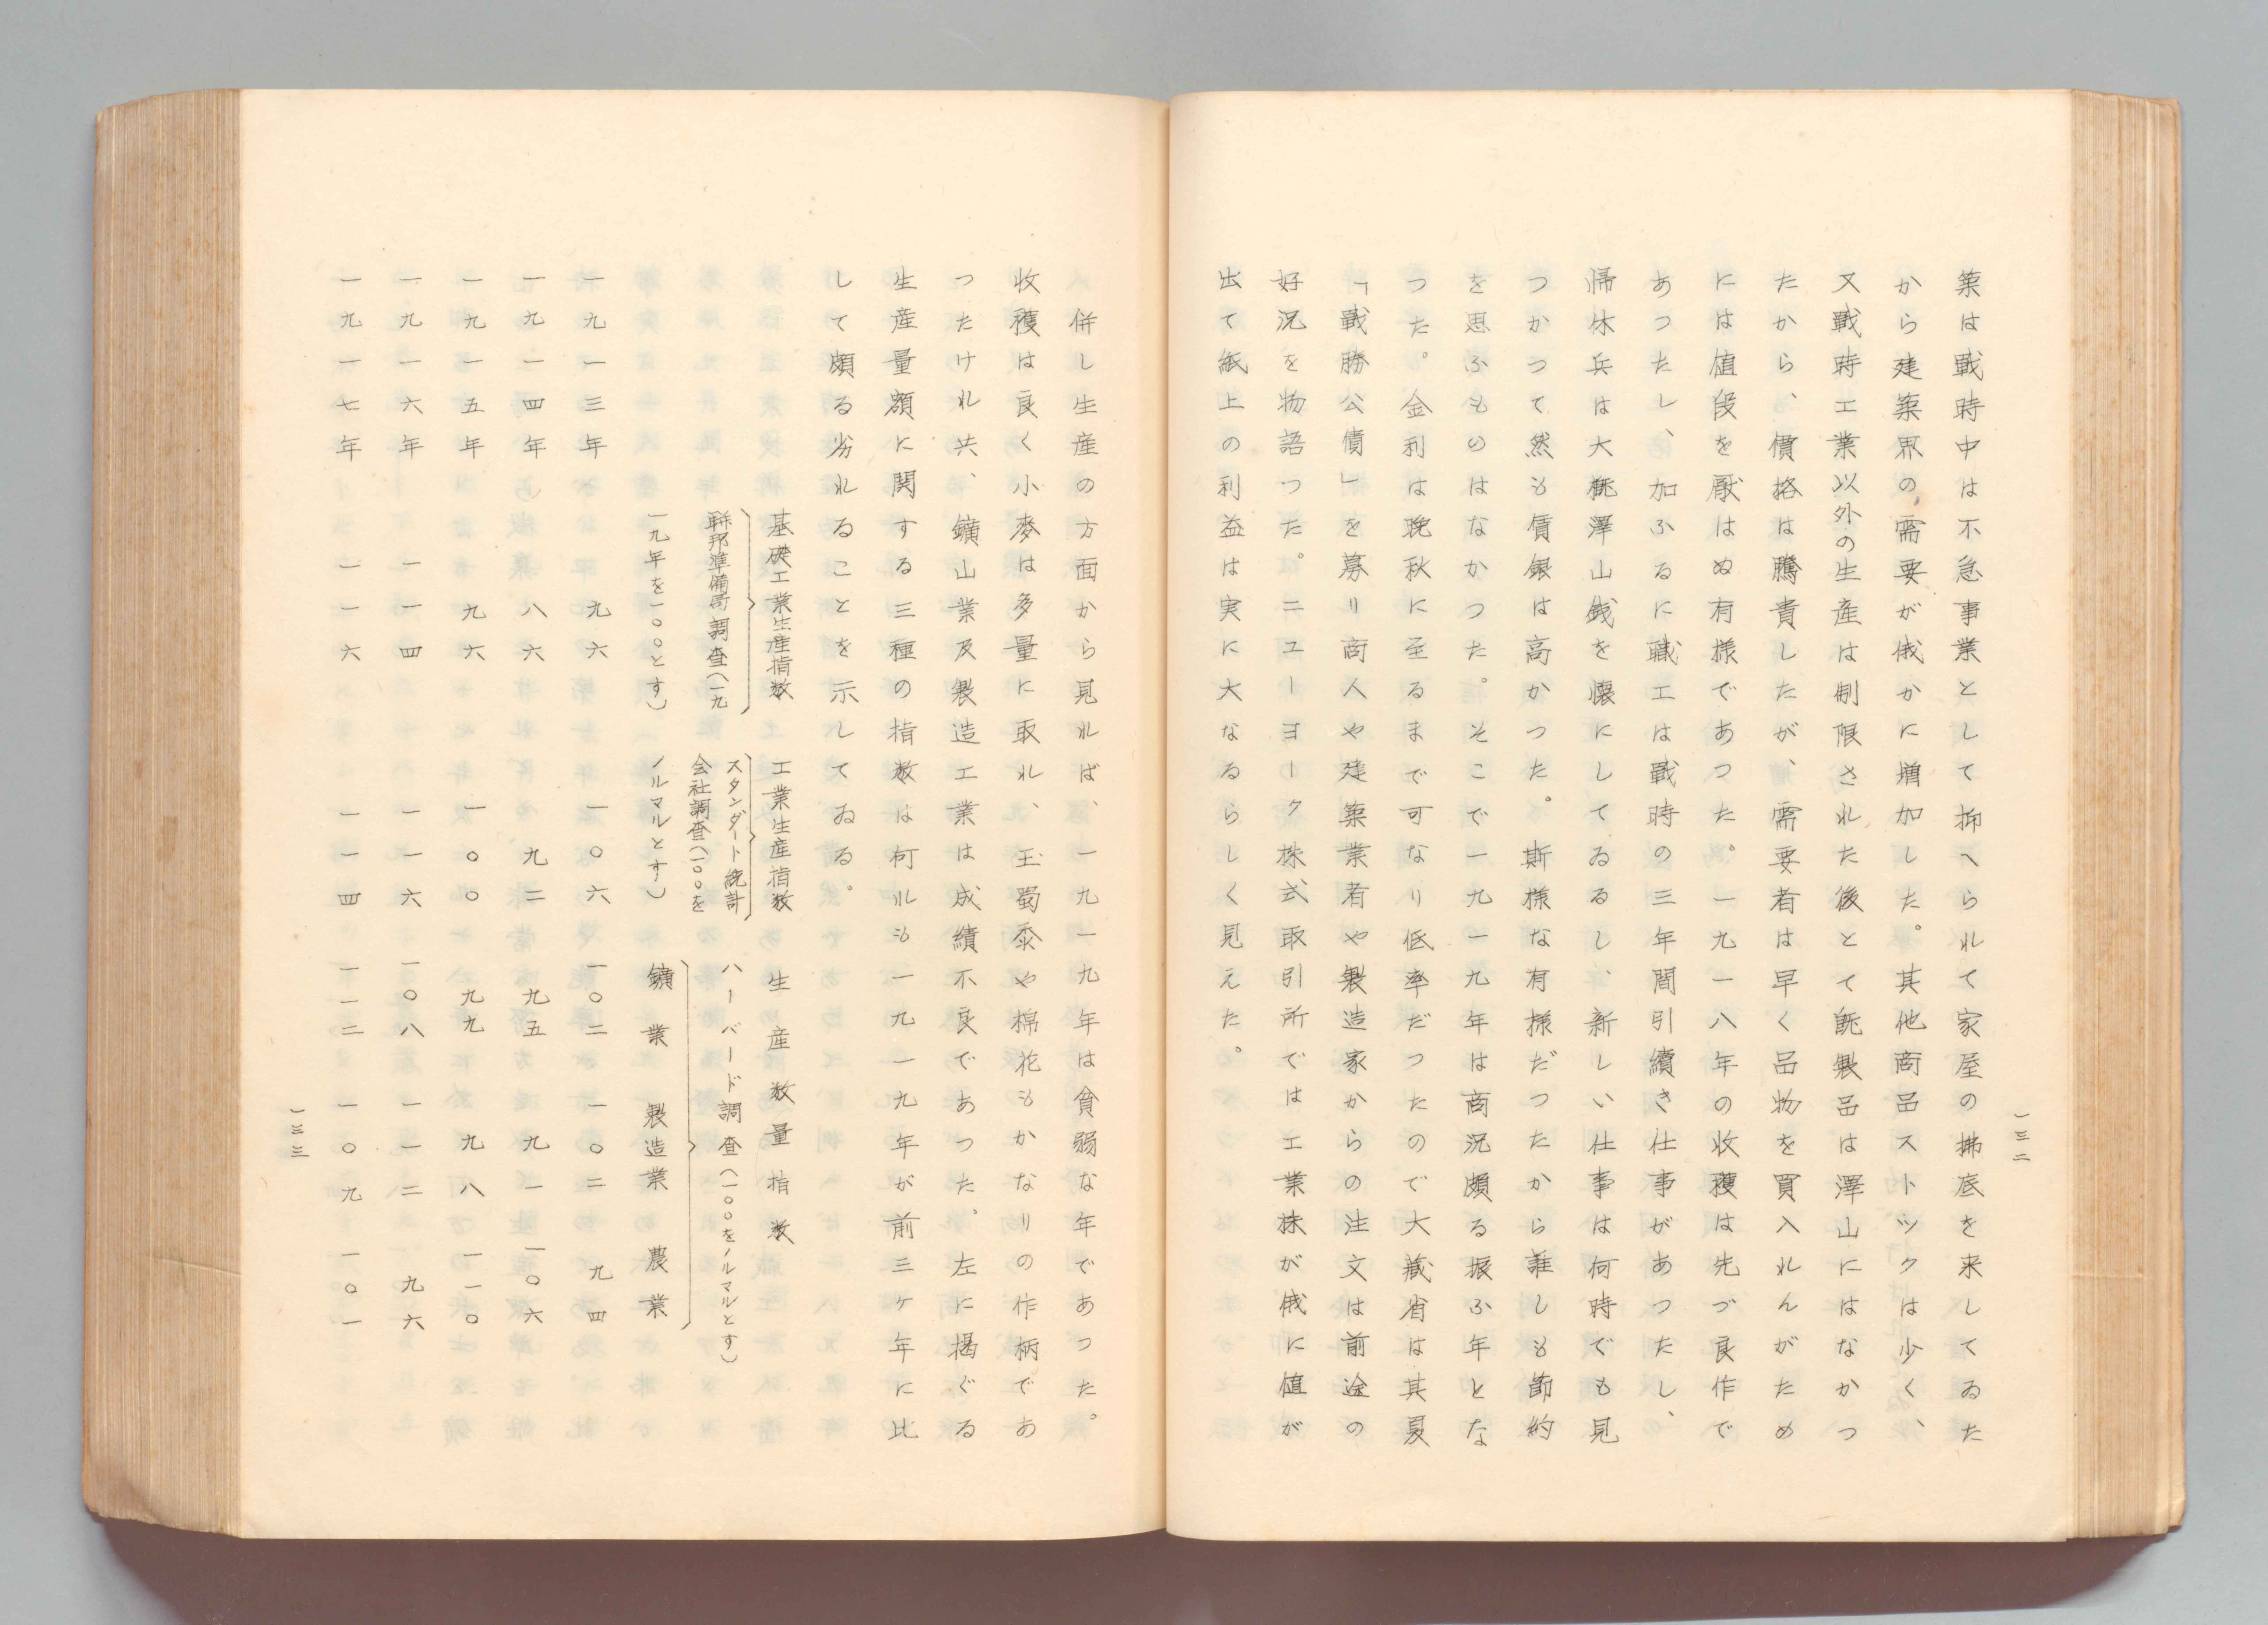 一三二
築は戰時中は不急事業として抑へられて家屋の拂底を来してゐた
から建築界の需要が俄かに増加した。其他商品ストツクは少く、
又戰時工業以外の生産は制限された後とて既製品は澤山にはなかつ
たから、價格は騰貴したが、需要者は早く品物を買入れんがため
には値段を厭はぬ有様であつた。一九一八年の收穫は先づ良作で
あつたし、加ふるに職工は戰時の三年間引續き仕事があつたし、
帰休兵は大概澤山銭を懐にしてゐるし、新しい仕事は何時でも見
つかつて然も賃銀は高かつた。斯様な有様だつたから誰しも節約
を思ふものはなかつた。そこで一九一九年は商況頗る振ふ年とな
つた。金利は晩秋に至るまで可なり低率だつたので大藏省は其夏
「戰勝公債」を募り商人や建築業者や製造家からの注文は前途の
好況を物語つた。ニユーヨーク株式取引所では工業株が俄に値が
出て紙上の利益は実に大なるらしく見えた。
併し生産の方面から見れば、一九一九年は貧弱な年であつた。
收穫は良く小麥は多量に取れ、玉蜀黍や棉花もかなりの作柄であ
つたけれ共、鑛山業及製造工業は成績不良であつた。左に掲ぐる
生産量額に関する三種の指数は何れも一九一九年が前三ケ年に比
して頗る劣れることを示してゐる。
基礎工業生産指数 工業生産指数 生産数量指数
聯邦準備局調査(一九一九年を一〇〇とす) スタンダート統計会社調査(一〇〇をノルマルとす) ハーバード調査(一〇〇をノルマルとす)
鑛業 製造業 農業
一九一三年 九六 一〇六 一〇二 一〇二 九四
一九一四年 八六 九二 九五 九一 一〇六
一九一五年 九六 一〇〇 九九 九八 一一〇
一九一六年 一一四 一一六 一〇八 一一二 九六
一九一七年 一一六 一一四 一一二 一〇九 一〇一
一三三